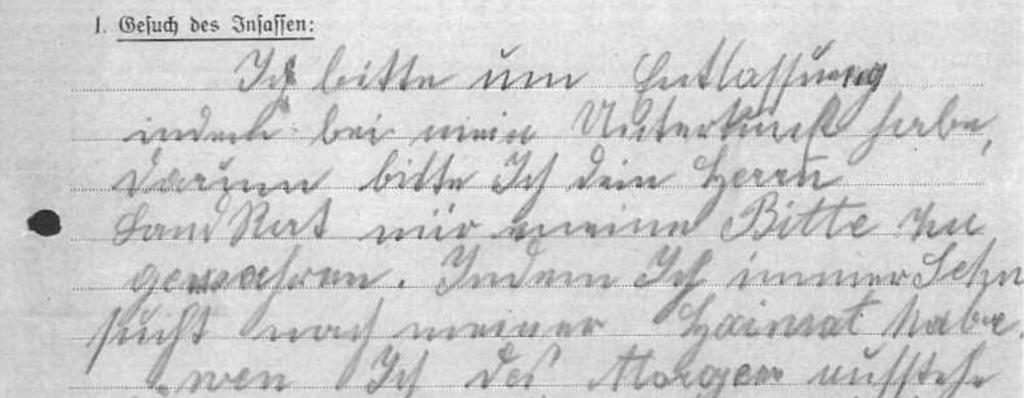 I. Gesuch des Insassen:
Ich bitte um Entlassung
indem bei mein Unterkunft habe,
Darum bitte Ich dem Herrn
Land Rat mir meine Bitte zu
gewahren. Indem Ich immer Sehn
sucht nach meiner Heimat habe.
wen Ich des Morgen aufstehe